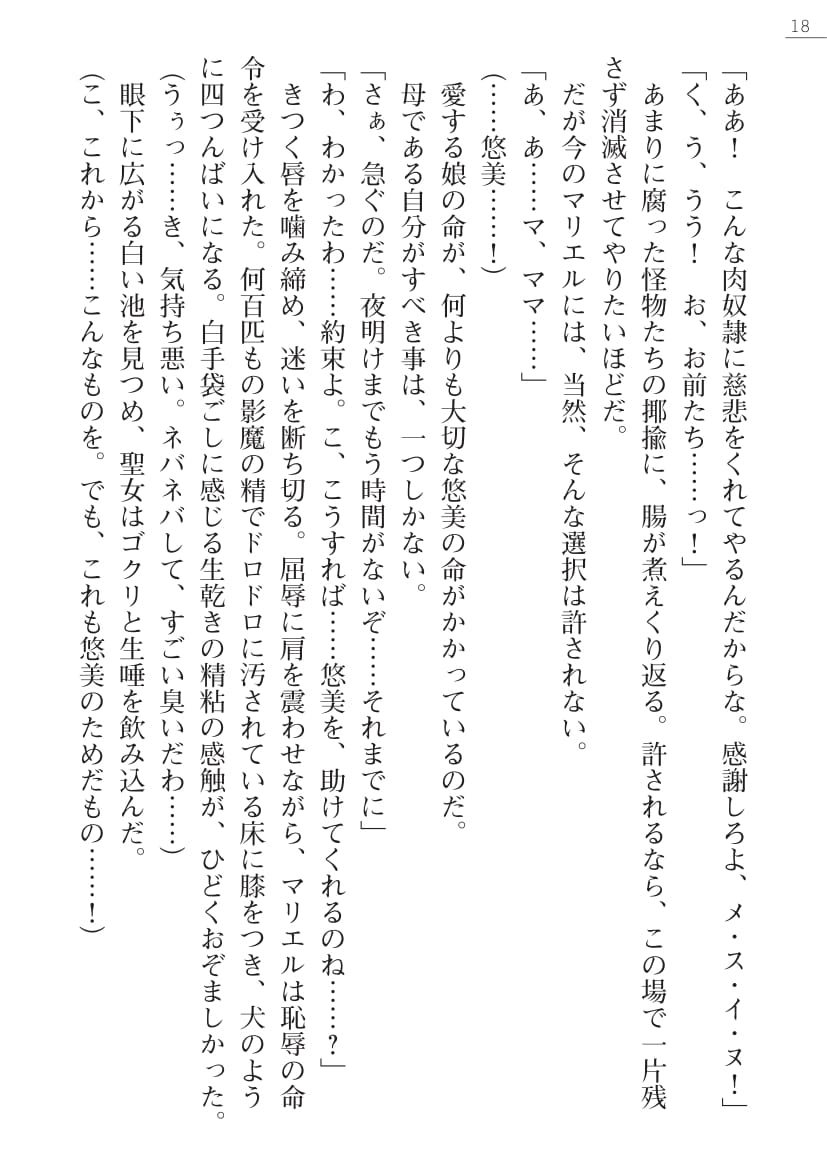 18
「ああ！　こんな肉奴隷に慈悲をくれてやるんだからな。感謝しろよ、メ・ス・イ・ヌ！」
「く、う、うう！　お、お前たち……っ！」
　あまりに腐った怪物たちの揶揄に、腸が煮えくり返る。許されるなら、この場で一片残
さず消滅させてやりたいほどだ。
　だが今のマリエルには、当然、そんな選択は許されない。
「あ、あ……マ、ママ……」
（……悠美……！）
　愛する娘の命が、何よりも大切な悠美の命がかかっているのだ。
　母である自分がすべき事は、一つしかない。
「さぁ、急ぐのだ。夜明けまでもう時間がないぞ……それまでに」
「わ、わかったわ……約束よ。こ、こうすれば……悠美を、助けてくれるのね……？」
　きつく唇を噛み締め、迷いを断ち切る。屈辱に肩を震わせながら、マリエルは恥辱の命
令を受け入れた。何百匹もの影魔の精でドロドロに汚されている床に膝をつき、犬のよう
に四つんばいになる。白手袋ごしに感じる生乾きの精粘の感触が、ひどくおぞましかった。
（うぅっ……き、気持ち悪い。ネバネバして、すごい臭いだわ……）
　眼下に広がる白い池を見つめ、聖女はゴクリと生唾を飲み込んだ。
（こ、これから……こんなものを。でも、これも悠美のためだもの……！）